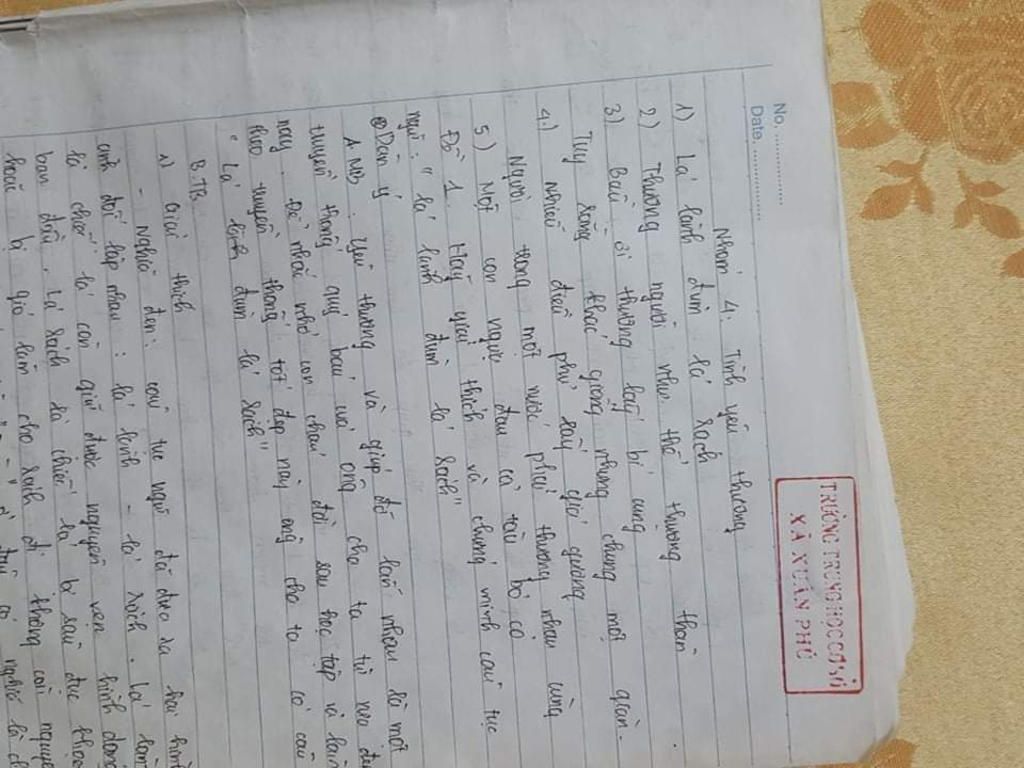 No. ....................
Date. ....................
TRƯỜNG TRUNG HỌC CƠ SỞ
XÃ XUÂN PHÚ
Nhóm 4: Tình yêu thương
1) Lá lành đùm lá rách
2) Thương người như thể thương thân
3) Bầu ơi thương lấy bí cùng
Tuy rằng khác giống nhưng chung một giàn.
4) Nhiễu điều phủ lấy giá gương
Người trong một nước phải thương nhau cùng
5) Một con ngựa đau cả tàu bỏ cỏ
Đề 1 Hãy giải thích và chứng minh câu tục
ngữ: "lá lành đùm lá rách"
Dàn ý
A. MB: Yêu thương và giúp đỡ lẫn nhau là một
truyền thống quý báu mà ông cha ta từ xưa
nay. Để nhắc nhở con cháu đời sau học tập và
theo truyền thống tốt đẹp này ông cha ta có câu
"Lá lành đùm lá rách"
B. TB
1) Giải thích
- Nghĩa đen: câu tục ngữ đã đưa ra hai hình
ảnh đối lập nhau: lá lành - lá rách. Lá lành
là chiếc lá còn giữ được nguyên vẹn hình dạng
ban đầu. Lá rách là chiếc lá bị sâu đục
hoặc bị gió làm cho rách đi không còn